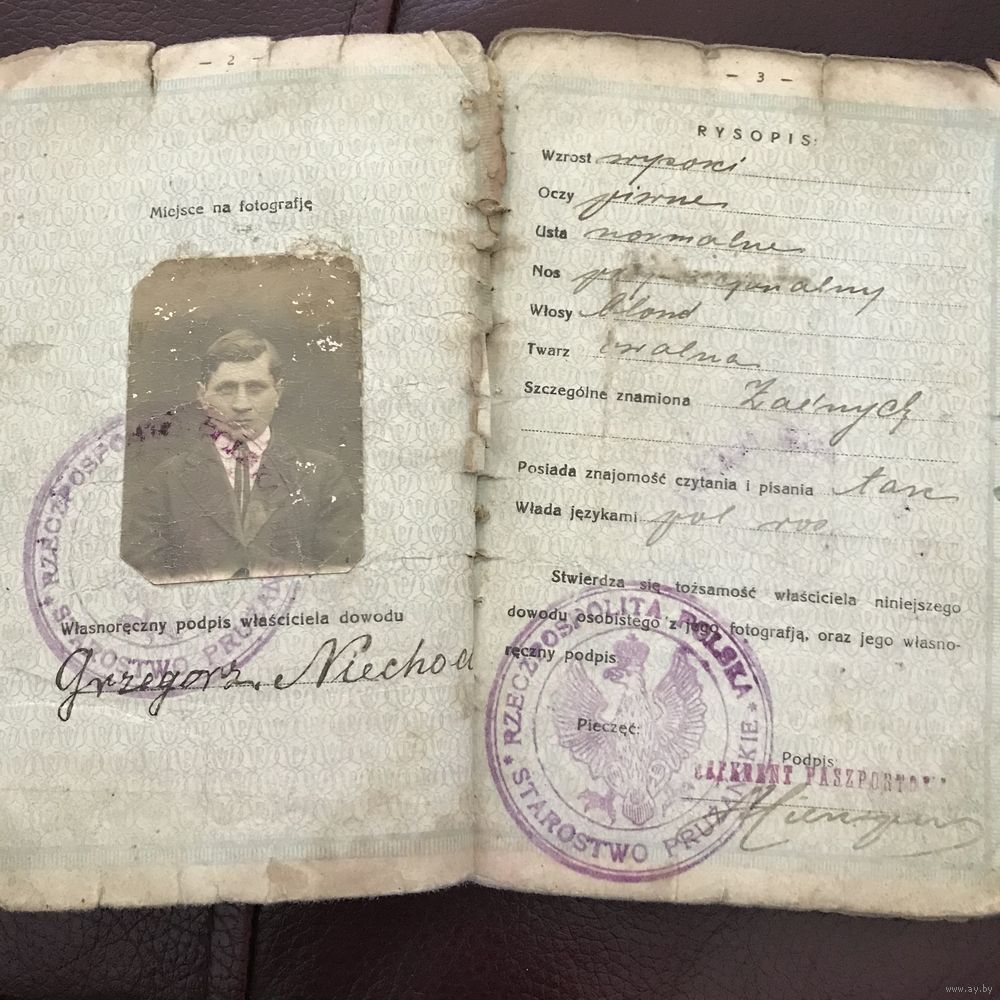 — 2 —
Miejsce na fotografję
* RZECZPOSPO
STAROSTWO PRUŻAŃS
Własnoręczny podpis właściciela dowodu
Grzegorz Niechod
— 3 —
RYSOPIS:
Wzrost wysoki
Oczy piwne
Usta normalne
Nos
Włosy blond
Twarz owalna
Szczególne znamiona Żadnych
Posiada znajomość czytania i pisania tak
Włada językami pol ros
Stwierdza się tożsamość właściciela niniejszego
dowodu osobistego z jego fotografją, oraz jego własno-
ręczny podpis
* RZECZPOSPOLITA POLSKA *
STAROSTWO PRUŻAŃSKIE
Pieczęć:
Podpis:
REFERENT PASZPORTOWY
www.ay.by